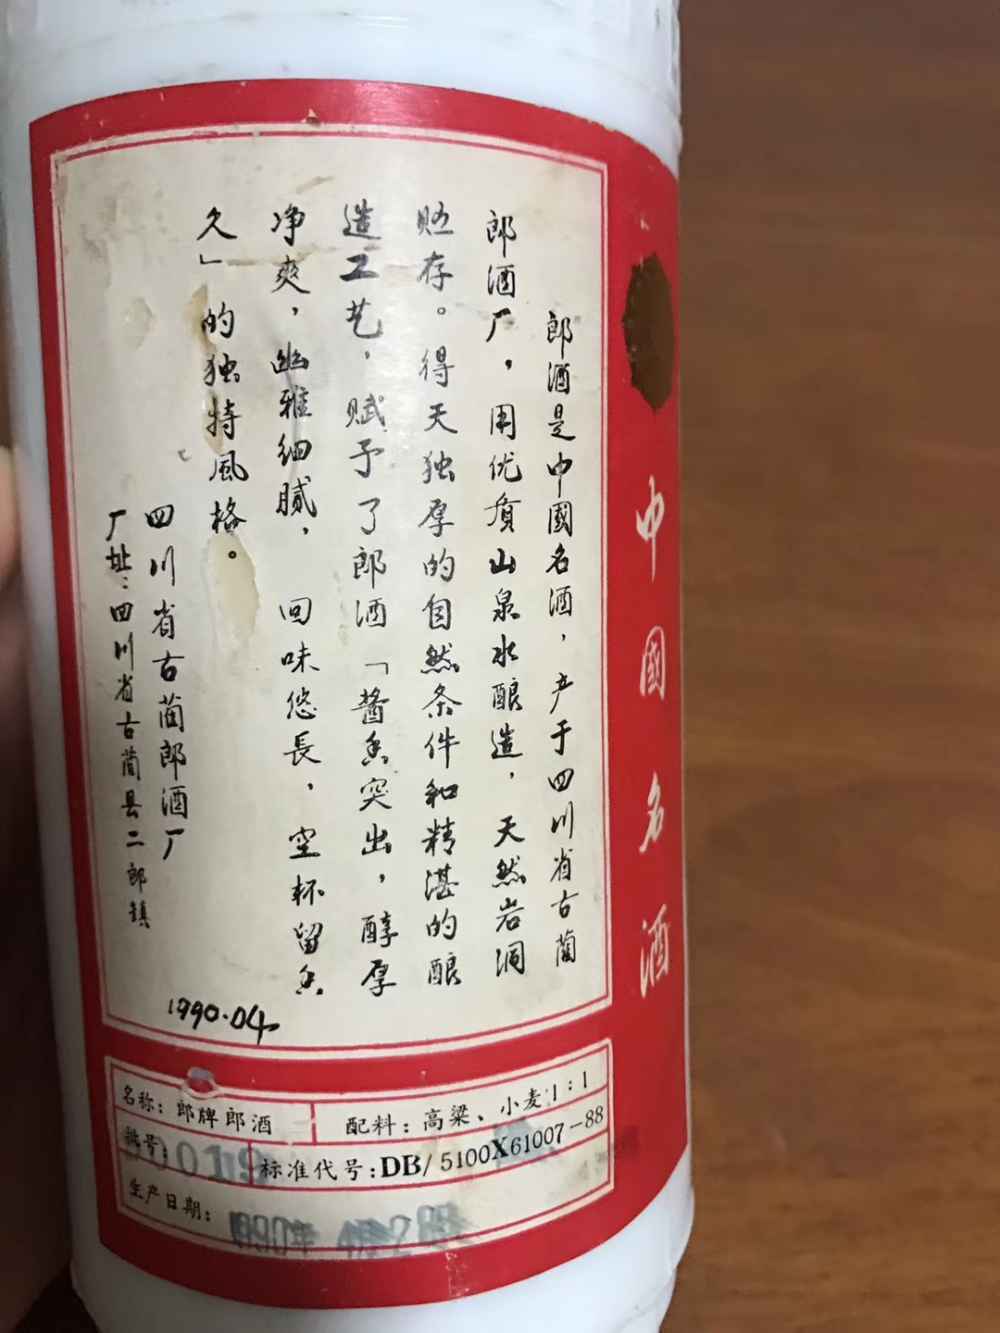 郎酒是中國名酒，产于四川省古蔺
郎酒厂，用优质山泉水酿造，天然岩洞
贮存。得天独厚的自然条件和精湛的酿
造工艺，赋予了郎酒「酱香突出，醇厚
净爽，幽雅细腻，回味悠長，空杯留香
久」的独特風格。
四川省古蔺郎酒厂
厂址：四川省古蔺县二郎镇
1990.04
中國名酒
名称：郎牌郎酒
配料：高粱、小麦1：1
批号：
标准代号：DB/5100X61007-88
生产日期：1990年